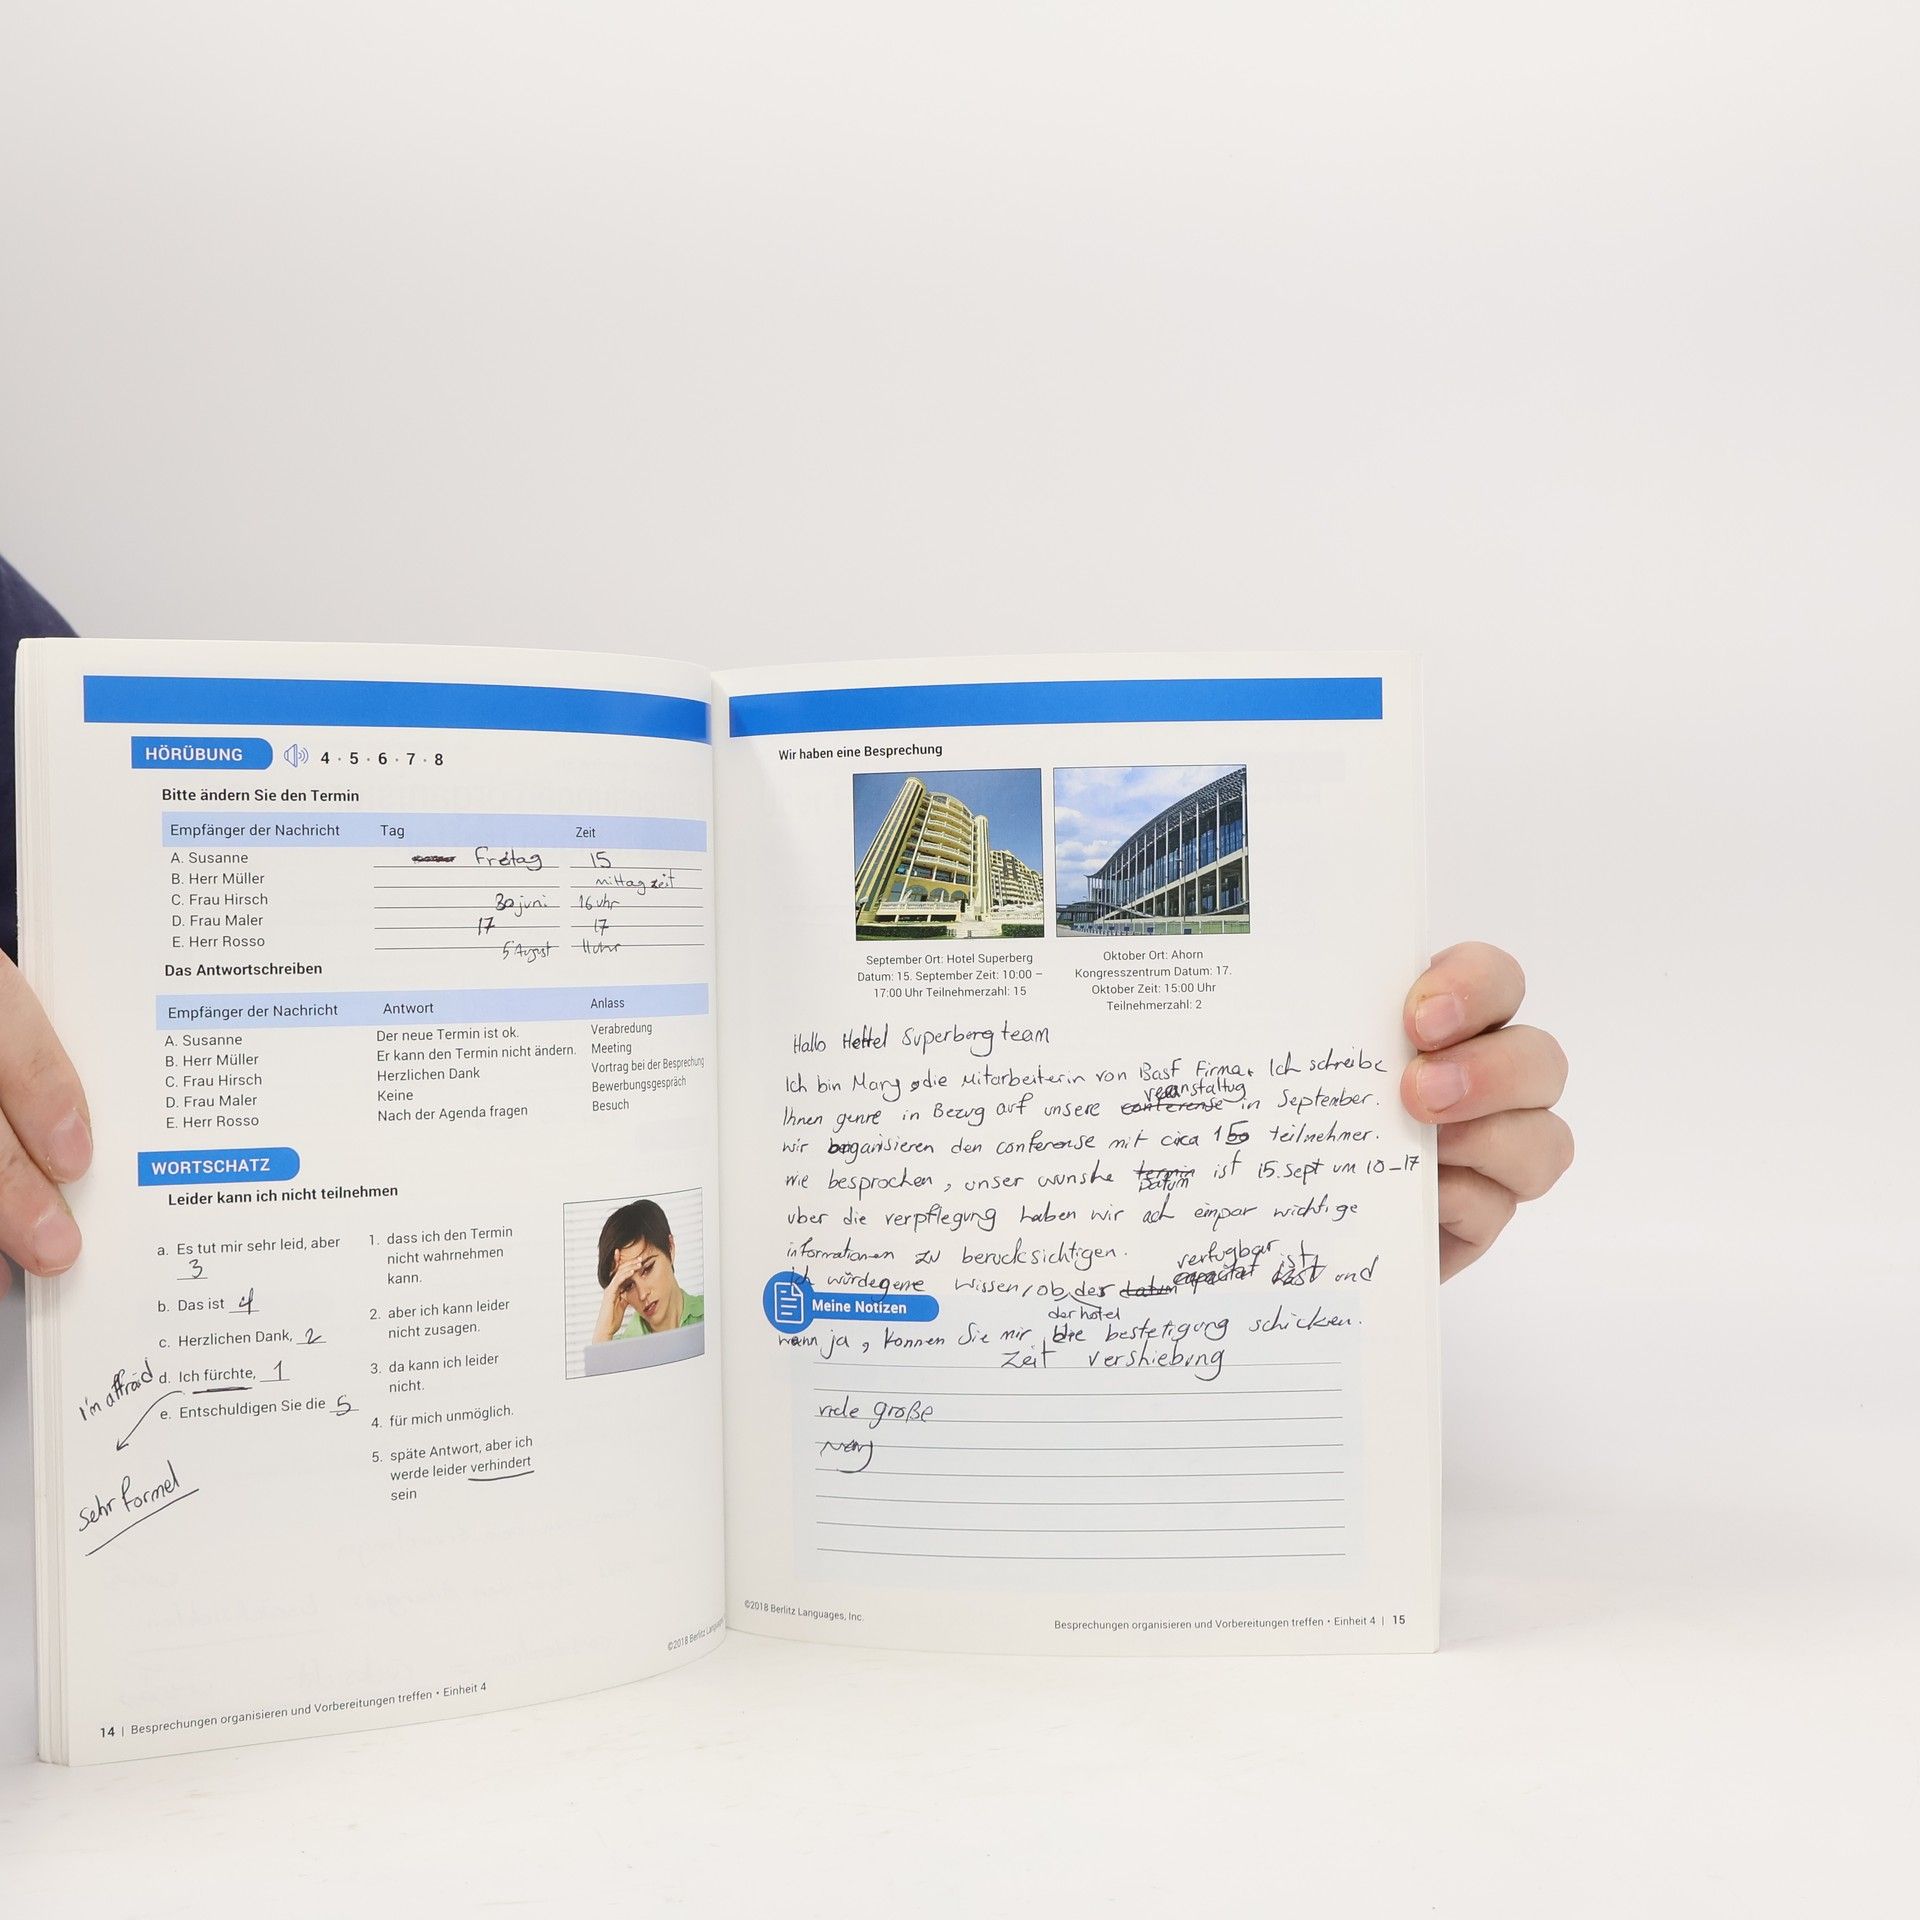 HÖRÜBUNG 4 · 5 · 6 · 7 · 8
Bitte ändern Sie den Termin
Empfänger der Nachricht Tag Zeit
A. Susanne Freitag 15
B. Herr Müller mittagzeit
C. Frau Hirsch 30 juni 16 uhr
D. Frau Maler 17 17
E. Herr Rosso 5 August 11 uhr
Das Antwortschreiben
Empfänger der Nachricht Antwort Anlass
A. Susanne Der neue Termin ist ok. Verabredung
B. Herr Müller Er kann den Termin nicht ändern. Meeting
C. Frau Hirsch Herzlichen Dank Vortrag bei der Besprechung
D. Frau Maler Keine Bewerbungsgespräch
E. Herr Rosso Nach der Agenda fragen Besuch
WORTSCHATZ
Leider kann ich nicht teilnehmen
a. Es tut mir sehr leid, aber
3
b. Das ist 4
c. Herzlichen Dank, 2
d. Ich fürchte, 1
e. Entschuldigen Sie die 5
I'm affraid
sehr formel
1. dass ich den Termin
nicht wahrnehmen
kann.
2. aber ich kann leider
nicht zusagen.
3. da kann ich leider
nicht.
4. für mich unmöglich.
5. späte Antwort, aber ich
werde leider verhindert
sein
©2018 Berlitz
14 | Besprechungen organisieren und Vorbereitungen treffen • Einheit 4
Wir haben eine Besprechung
September Ort: Hotel Superberg
Datum: 15. September Zeit: 10:00 –
17:00 Uhr Teilnehmerzahl: 15
Oktober Ort: Ahorn
Kongresszentrum Datum: 17.
Oktober Zeit: 15:00 Uhr
Teilnehmerzahl: 2
Hallo Superberg team
Ich bin Mary, die Mitarbeiterin von Basf Firma. Ich schreibe
Ihnen genre in Bezug auf unsere conferense in September.
wir organisieren den conferense mit circa 15 teilnehmer.
wie besprochen, unser wunshe termin Datum ist 15. Sept um 10-17
uber die verpflegung haben wir ach einpar wichtige
informationen zu berucksichtigen. verfugbar ist
ich würdegene wissen, ob der datum und
der hotel
Meine Notizen
wann ja, konnen Sie mir die bestetigung schicken.
Zeit vershiebung
viele große
Mary
©2018 Berlitz Languages, Inc.
Besprechungen organisieren und Vorbereitungen treffen • Einheit 4 | 15